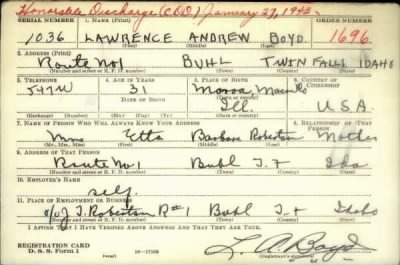 Honorable Discharge (CDD) January 27, 1943-
SERIAL NUMBER 1. NAME (Print) ORDER NUMBER
1036 LAWRENCE ANDREW BOYD 1696
(First) (Middle) (Last)
2. ADDRESS (Print)
Route No 1 BUHL TWIN FALLS IDAHO
(Number and street or R. F. D. number) (Town) (County) (State)
3. TELEPHONE 4. AGE IN YEARS 5. PLACE OF BIRTH 6. COUNTRY OF CITIZENSHIP
31 Macon Co
DATE OF BIRTH (Town or county)
Ill. U.S.A.
(Exchange) (Number) (Mo.) (Day) (Yr.) (State or country)
7. NAME OF PERSON WHO WILL ALWAYS KNOW YOUR ADDRESS 8. RELATIONSHIP OF THAT PERSON
Mrs Etta Barbara Robertson Mother
(Mr., Mrs., Miss) (First) (Middle) (Last)
9. ADDRESS OF THAT PERSON
Route No 1 Buhl T. F. Ida
(Number and street or R. F. D. number) (Town) (County) (State)
10. EMPLOYER'S NAME
self.
11. PLACE OF EMPLOYMENT OR BUSINESS
J. Robertson R#1 Buhl T. F. Idaho
(Number and street or R. F. D. number) (Town) (County) (State)
I AFFIRM THAT I HAVE VERIFIED ABOVE ANSWERS AND THAT THEY ARE TRUE.
REGISTRATION CARD
D. S. S. Form 1 (over) L. A. Boyd
(Registrant's signature)